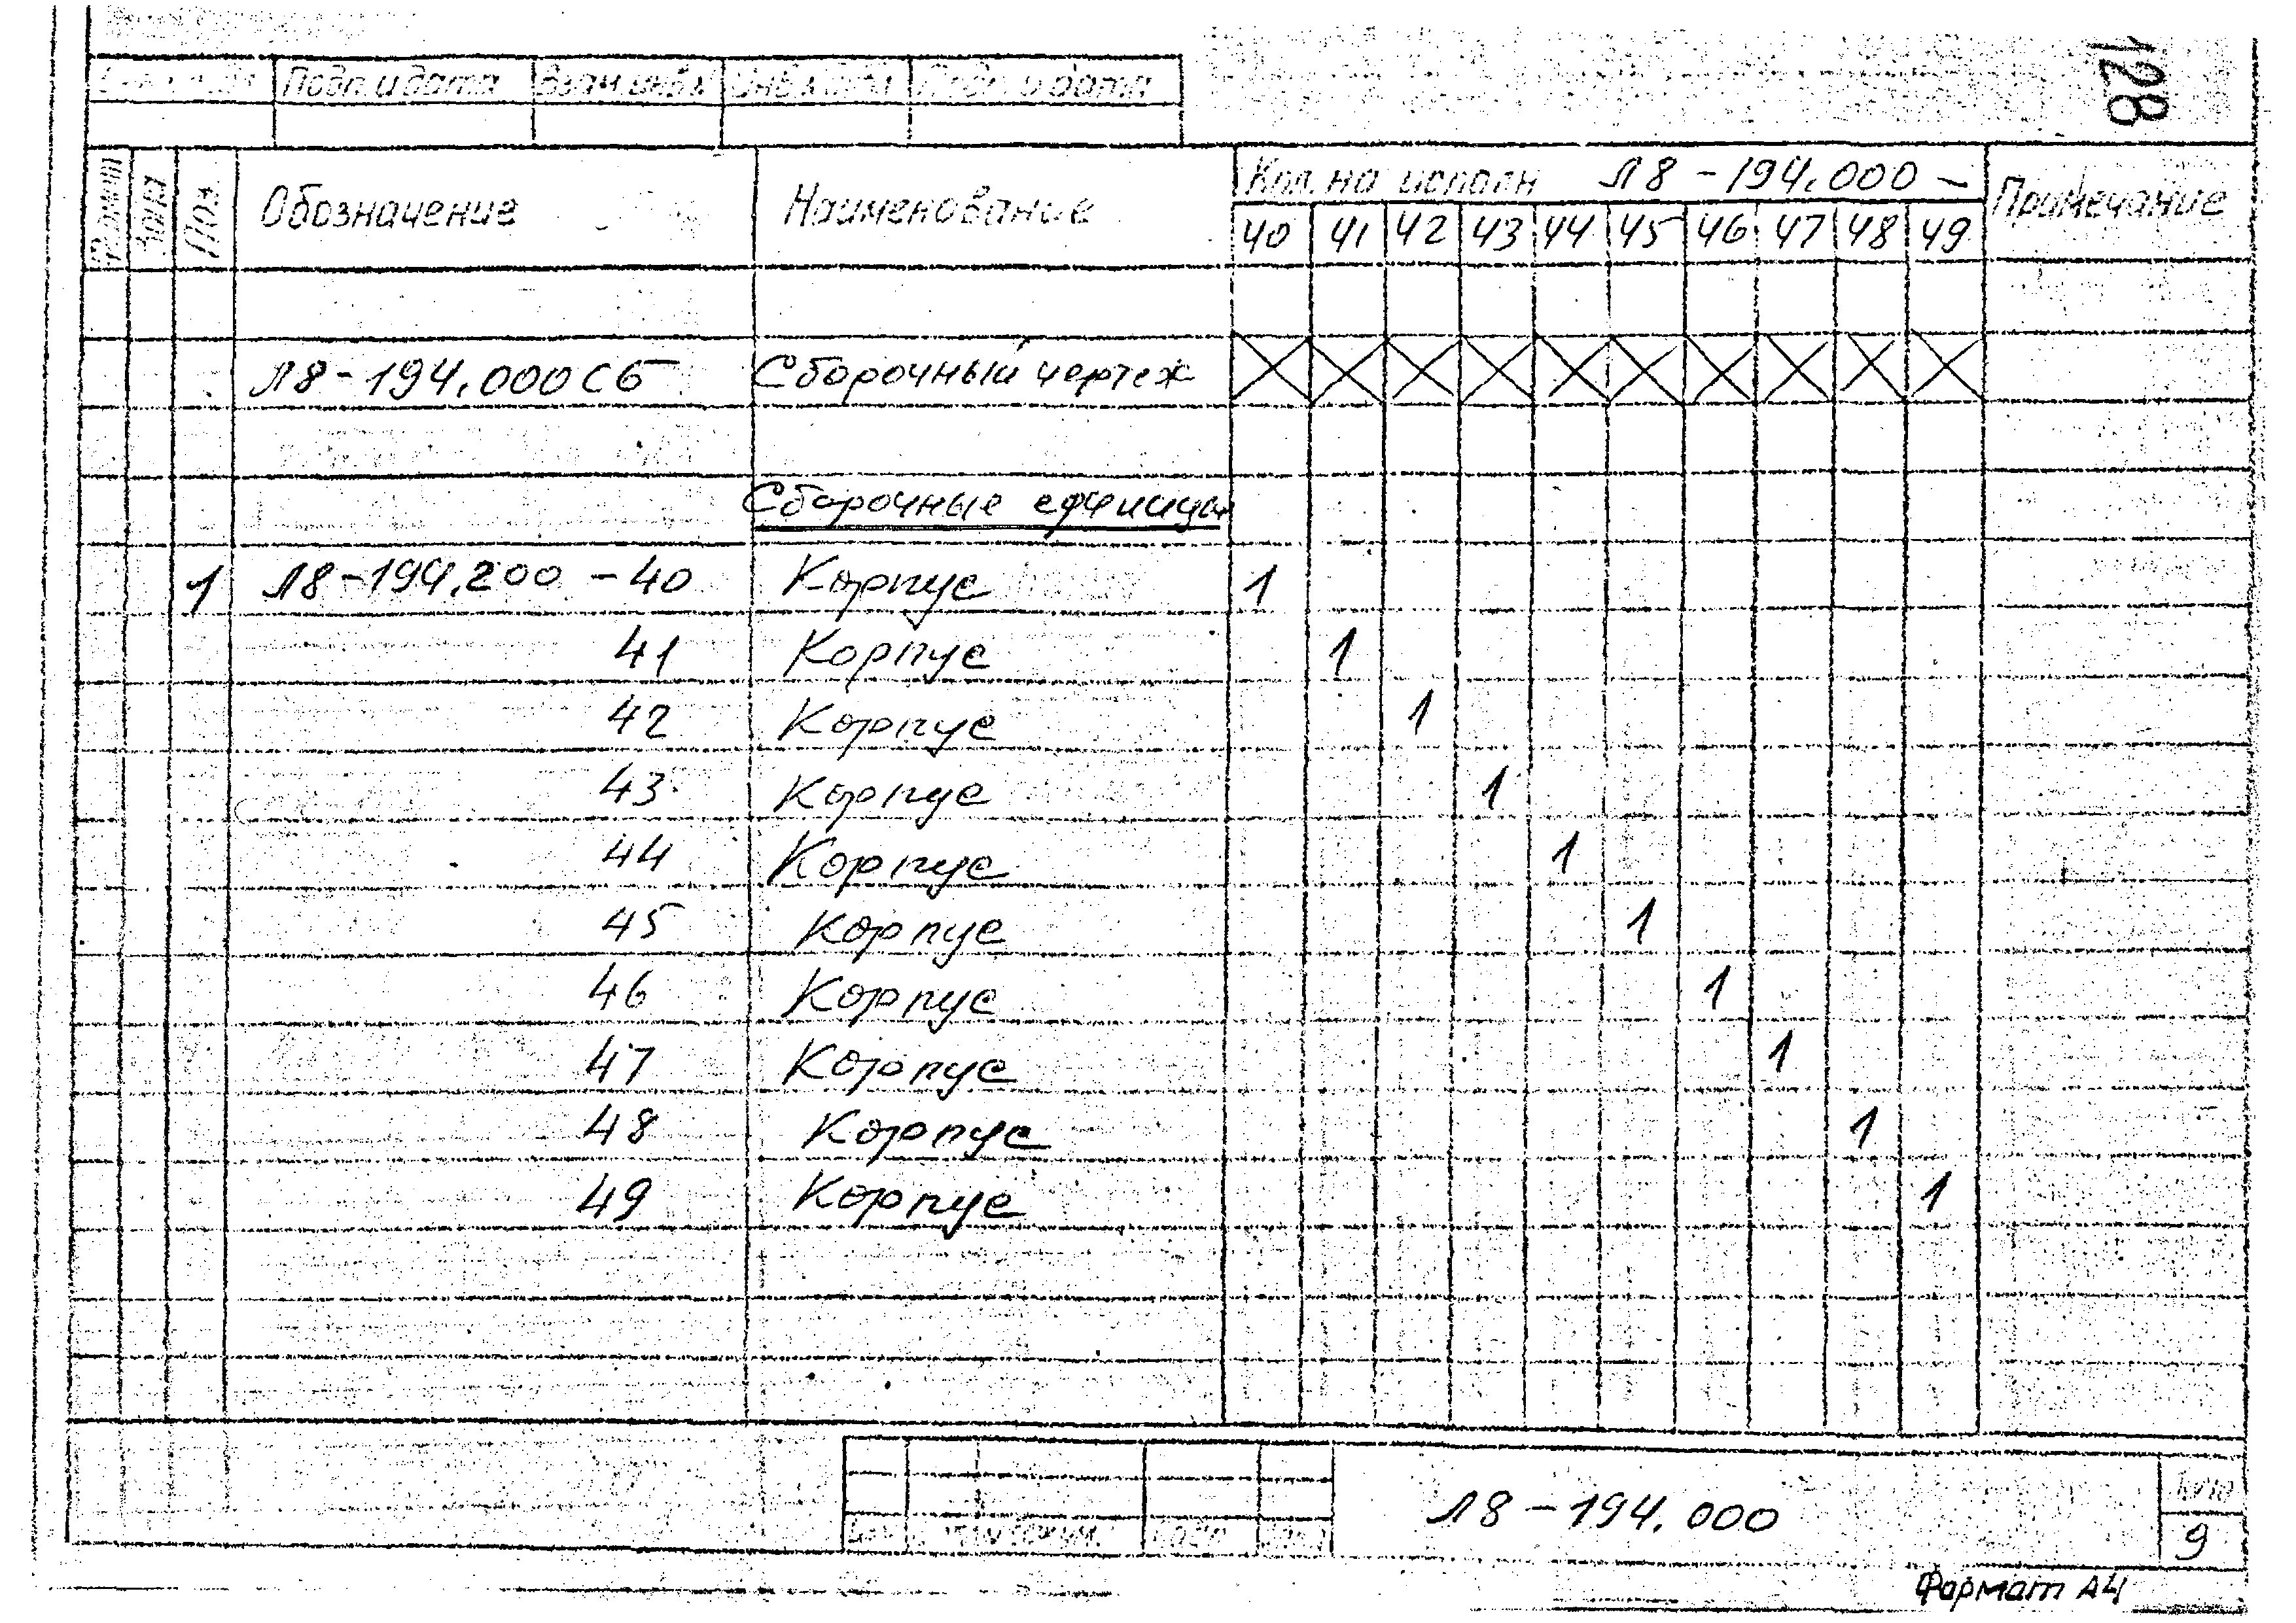 128
Подп. и дата Взам. инв. № Подп. и дата
Формат Зона Поз. Обозначение Наименование Кол. на исполн Л8-194.000- Примечание
40 41 42 43 44 45 46 47 48 49
Л8-194.000СБ Сборочный чертеж
Сборочные единицы
1 Л8-194.200 -40 Корпус 1
41 Корпус 1
42 Корпус 1
43 Корпус 1
44 Корпус 1
45 Корпус 1
46 Корпус 1
47 Корпус 1
48 Корпус 1
49 Корпус 1
Л8-194.000
9
Формат А4